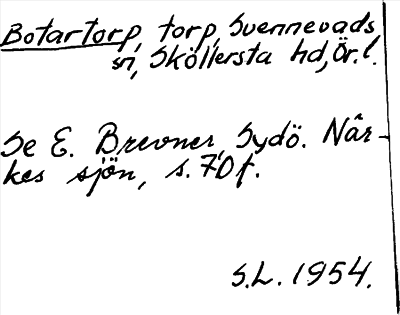 Botartorp, torp, Svennevads
sn, Sköllersta hd, Ör.l.
Se E. Brevner, Sydö. När-
kes sjön, s. 70 f.
S.L. 1954.